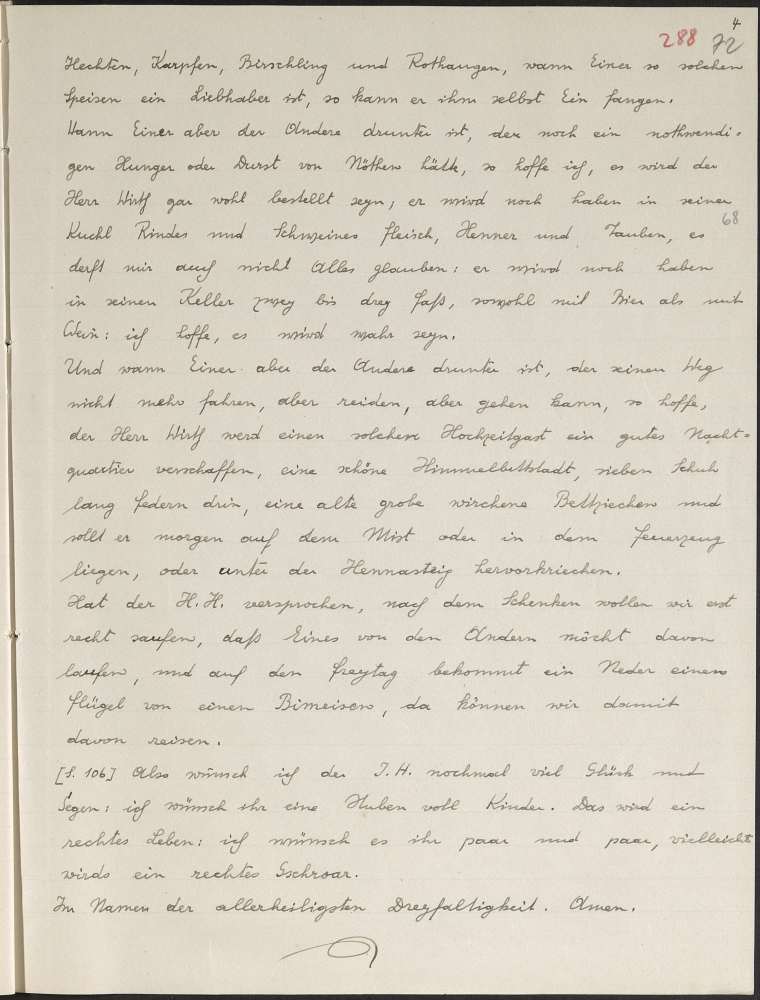 4
288 72
Hechten, Karpfen, Birschling und Rothaugen, wann Einer so solchen
Speisen ein Liebhaber ist, so kann er ihm selbst Ein fangen.
Wann Einer aber der Andere drunter ist, der noch ein nothwendi-
gen Hunger oder Durst von Nöthen hätte, so hoffe ich, es wird der
Herr Wirth gar wohl bestellt seyn, er wird noch haben in seiner
68
Kuchl Rindes und Schweines Fleisch, Henner und Tauben, es
derft mir auch nicht Alles glauben: er wird noch haben
in seinen Keller zwey bis drey Faß, sowohl mit Bier als mit
Wein: ich hoffe, es wird wahr seyn.
Und wann Einer aber der Andere drunter ist, der seinen Weg
nicht mehr fahren, aber reiden, aber gehen kann, so hoffe,
der Herr Wirth werd einen solchen Hochzeitgast ein gutes Nacht-
quartier verschaffen, eine schöne Himmelbettstadt, sieben Schuh
lang Federn drin, eine alte grobe wirchene Bettziechen und
sollt er morgen auf dem Mist oder in dem Feuerzeug
liegen, oder unter der Hennasteig hervorkriechen.
Hat der H. H. versprochen, nach dem Schenken wollen wir erst
recht saufen, daß Eines von den Andern möcht davon
laufen, und auf den Freytag bekommt ein Neder einen
Flügel von einen Bimeisen, da können wir damit
davon reisen.
[S. 106] Also wünsch ich der J. H. nochmal viel Glück und
Segen: ich wünsch ihr eine Huben voll Kinder. Das wird ein
rechtes Leben: ich wünsch es ihr paar und paar, vielleicht
wirds ein rechtes Gschroar.
Im Namen der allerheiligsten Dreyfaltigkeit. Amen.